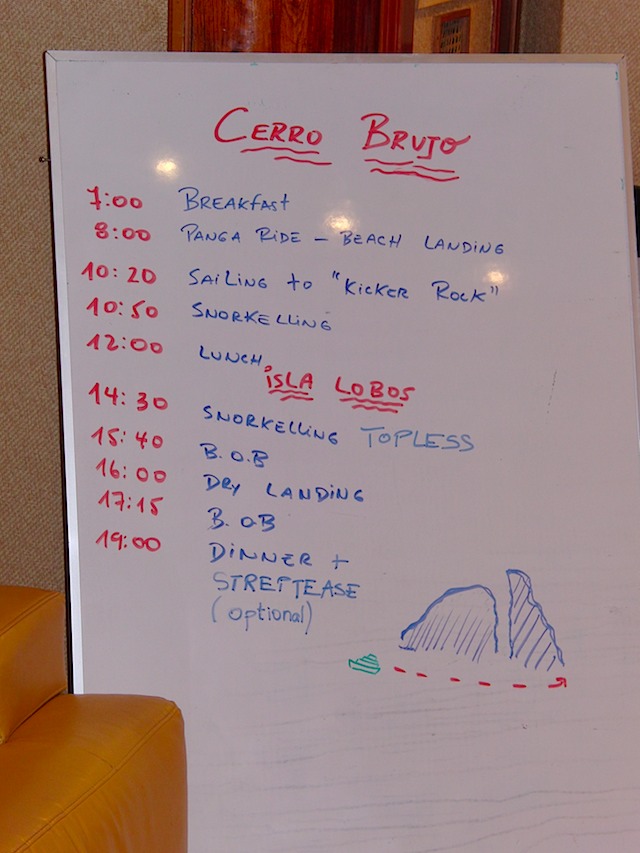 CERRO BRUJO
7:00 BREAKfAST
8:00 PANGA RIDE – BEACH LANDING
10:20 SAILING to "KICKER ROCK"
10:50 SNORKELLING
12:00 LUNCH
ISLA LOBOS
14:30 SNORKELLING TOPLESS
15:40 B.O.B
16:00 DRY LANDING
17:15 B.OB
19:00 DINNER +
STREPTEASE
(optional)